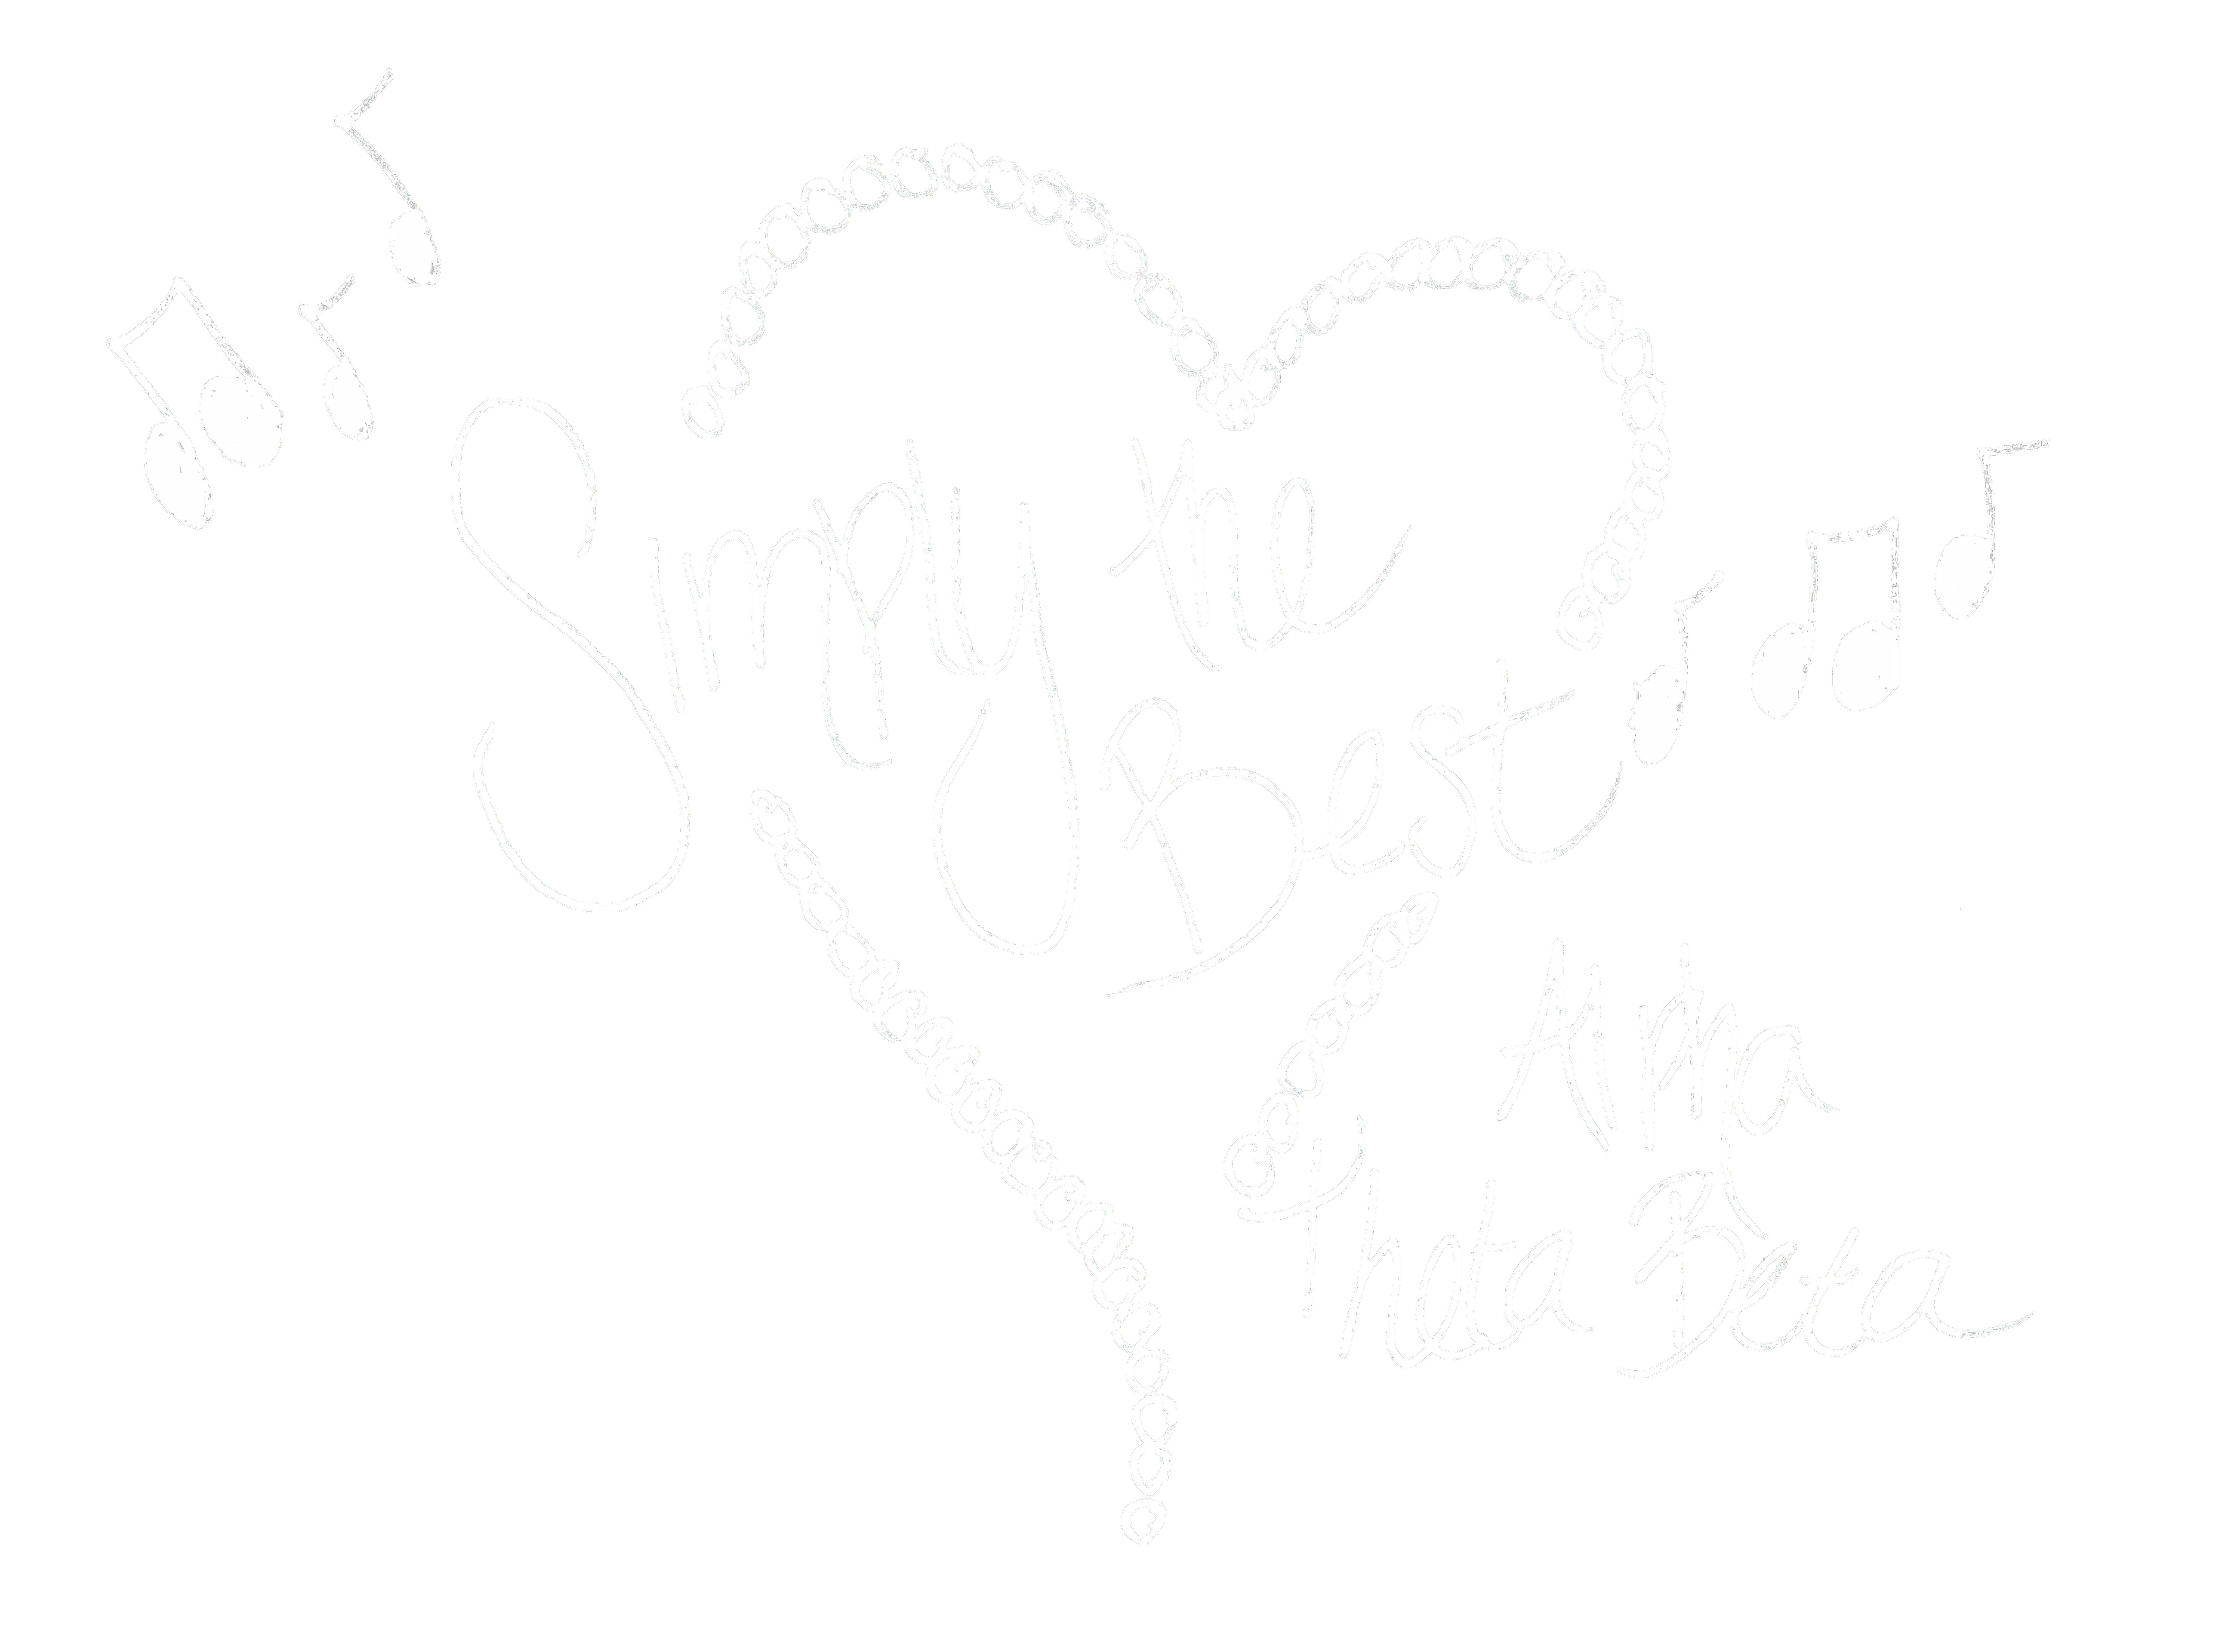 Simply the
Best
Alpha
Theta Beta